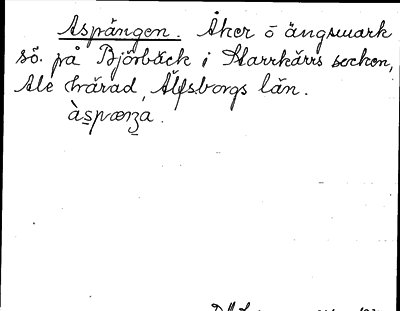 Aspängen. Åker o ängsmark
sö. på Björbäck i Starrkärrs socken,
Ale härad, Älfsborgs län.
àspænʒa.